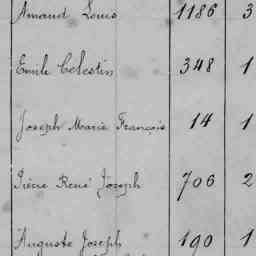 Amand Louis 1186 3
Emile Celestin 348 1
Joseph Marie François 14 1
Pierre René Joseph 706 2
Auguste Joseph 190 1